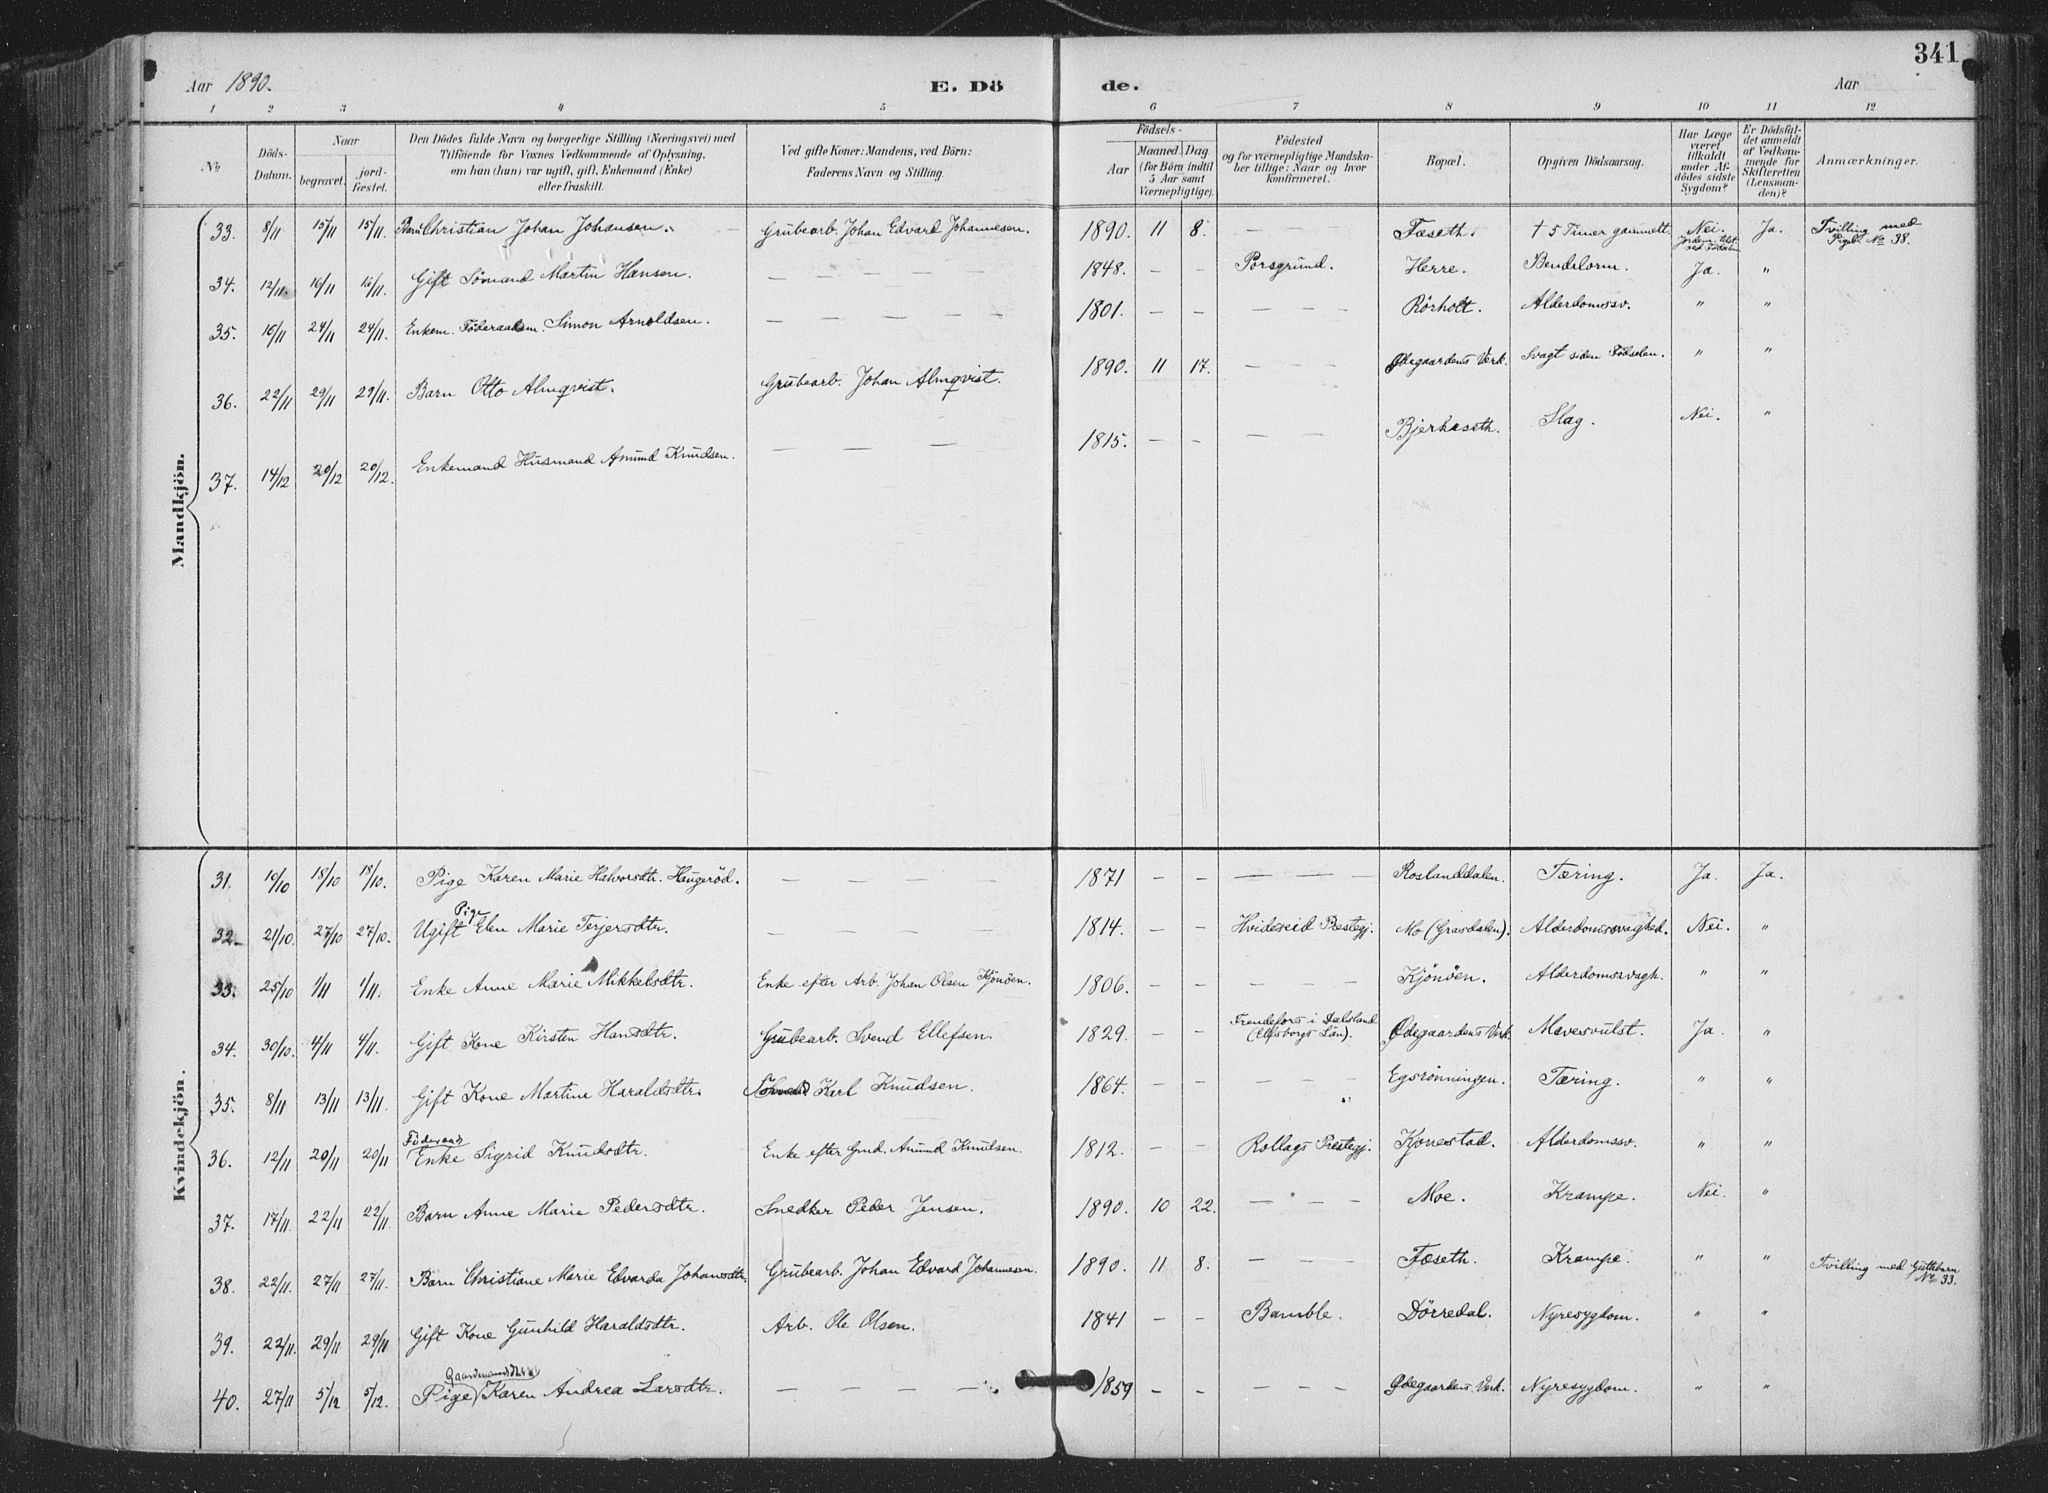 341
Aar 1890. E. Dö de. Aar
1 2 3 4 5 6 7 8 9 10 11 12
No. Döds-Datum. Naar begravet. jordfæstet. Den Dödes fulde Navn og borgerlige Stilling (Næringsvei) med Tilföiende for Voxnes Vedkommende af Oplysning, om han (hun) var ugift, gift, Enkemand (Enke) eller fraskilt. Ved gifte Koner: Mandens, ved Börn: Faderens Navn og Stilling. Födsels- Aar Maaned. Dag. (for Börn indtil 5 Aar samt Værnepligtige). Födested og for værnepligtige Mandskaber tillige: Naar og hvor konfirmeret. Bopæl. Opgiven Dödsaarsag. Har Læge været tilkaldt under Afdödes sidste Sygdom? Er Dödsfaldet anmeldt af Vedkommende for Skifteretten (Lensmanden)? Anmærkninger.
Mandkjön.
33. 8/11 15/11 15/11. Barn Christian Johan Johansen. Grubearb. Johan Edvard Johannesen. 1890. 11 8. — — — Fæseth. † 5 Timer gammelt. Nei. Ja. Tvilling med Pigeb. No 38.
34. 12/11. 16/11 16/11. Gift Sömand Martin Hansen. — — — 1848. — — Porsgrund. Herre. Bendelorm. Ja. "
35. 16/11 24/11 24/11. Enkem. Föderaadsm. Simon Arnoldsen. — — — — 1801. — — — — — Rörholt. Alderdomssv. " "
36. 22/11 29/11 29/11. Barn Otto Almqvist. Grubearb. Johan Almqvist. 1890. 11 17. — — — Ödegaardens Verk. Svagt siden Födselen. " "
37. 14/12 20/12 20/12. Enkemand Husmand Amund Knudsen. — — — 1815. — — — — — Bjerkeseth. Slag. Nei. "
Kvindekjön.
31. 10/10 18/10 18/10. Pige Karen Marie Halvorsdtr. Haugeröd. — — — 1871 — — — — — Roslanddalen. Tæring. Ja. Ja.
32. 21/10. 27/10 27/10. Ugift Pige Elen Marie Terjersdtr. — — — — 1814. — — Hvideseid Prestegj. Mo (Grasdalen). Alderdomssvaghed. Nei. "
33. 25/10 1/11 1/11. Enke Anne Marie Mikkelsdtr. Enke efter Arb. Johan Olsen Kjönöen. 1806. — — — — — Kjönöen. Alderdomssvagh. " "
34. 30/10. 4/11 4/11. Gift Kone Kirsten Hansdtr. Grubearb. Svend Ellefsen. 1829 — — Frendefors i Dalsland (Elfsborgs Län). Ödegaardens Verk. Mavesvulst. Ja. "
35. 8/11 13/11 13/11. Gift Kone Martine Haraldsdtr. Sömand Karl Knudsen. 1864. — — — — — Egsrönningen. Tæring. " "
36. 12/11 20/11 20/11 Föderaads Enke Sigrid Knudsdtr. Enke efter Gmd. Amund Knudsen. 1812. — — Rollags Prestegj. Kjonestad. Alderdomssv. " "
37. 17/11. 22/11 22/11. Barn Anne Marie Pedersdtr. Snedker Peder Jensen. 1890. 10 22. — — — Moe. Krampe. Nei. "
38. 22/11. 27/11 27/11. Barn Christiane Marie Edvarda Johansdtr. Grubearb. Johan Edvard Johannesen. 1890. 11 8. — — — Fæseth. Krampe. " " Tvilling med Guttebarn No 33.
39. 22/11. 29/11 29/11 Gift Kone Gunhild Haraldsdtr. Arb. Ole Olsen. 1841 — — Bamble. Dörredal. Nyresygdom. " "
40. 27/11 5/12 5/12. Pige Karen Andrea Larsdtr. — — — — 1859 — — — — — Ödegaardens Verk. Nyresygdom. " "